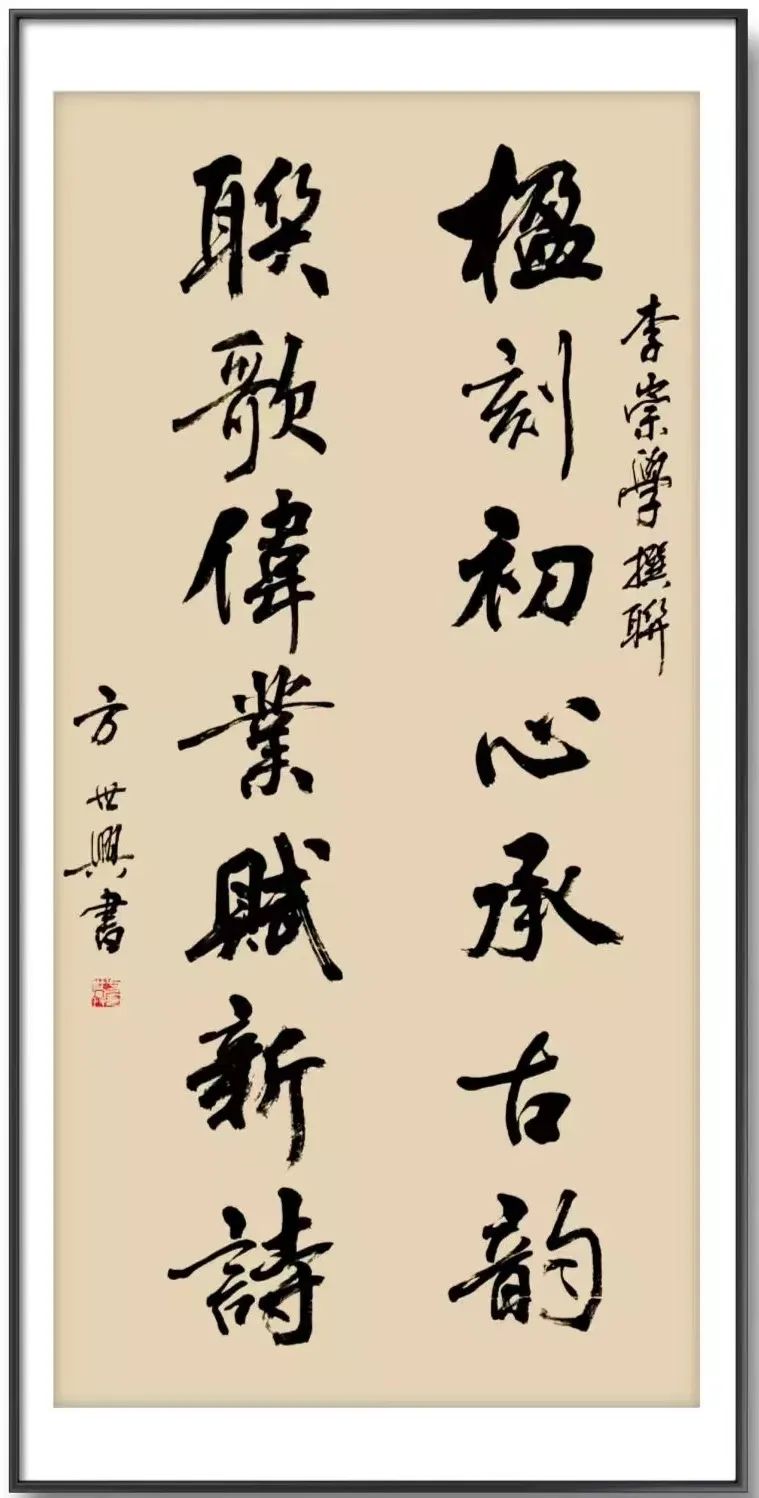 李崇学撰聯
楹刻初心承古韵
聯歌偉業賦新詩
方世興書